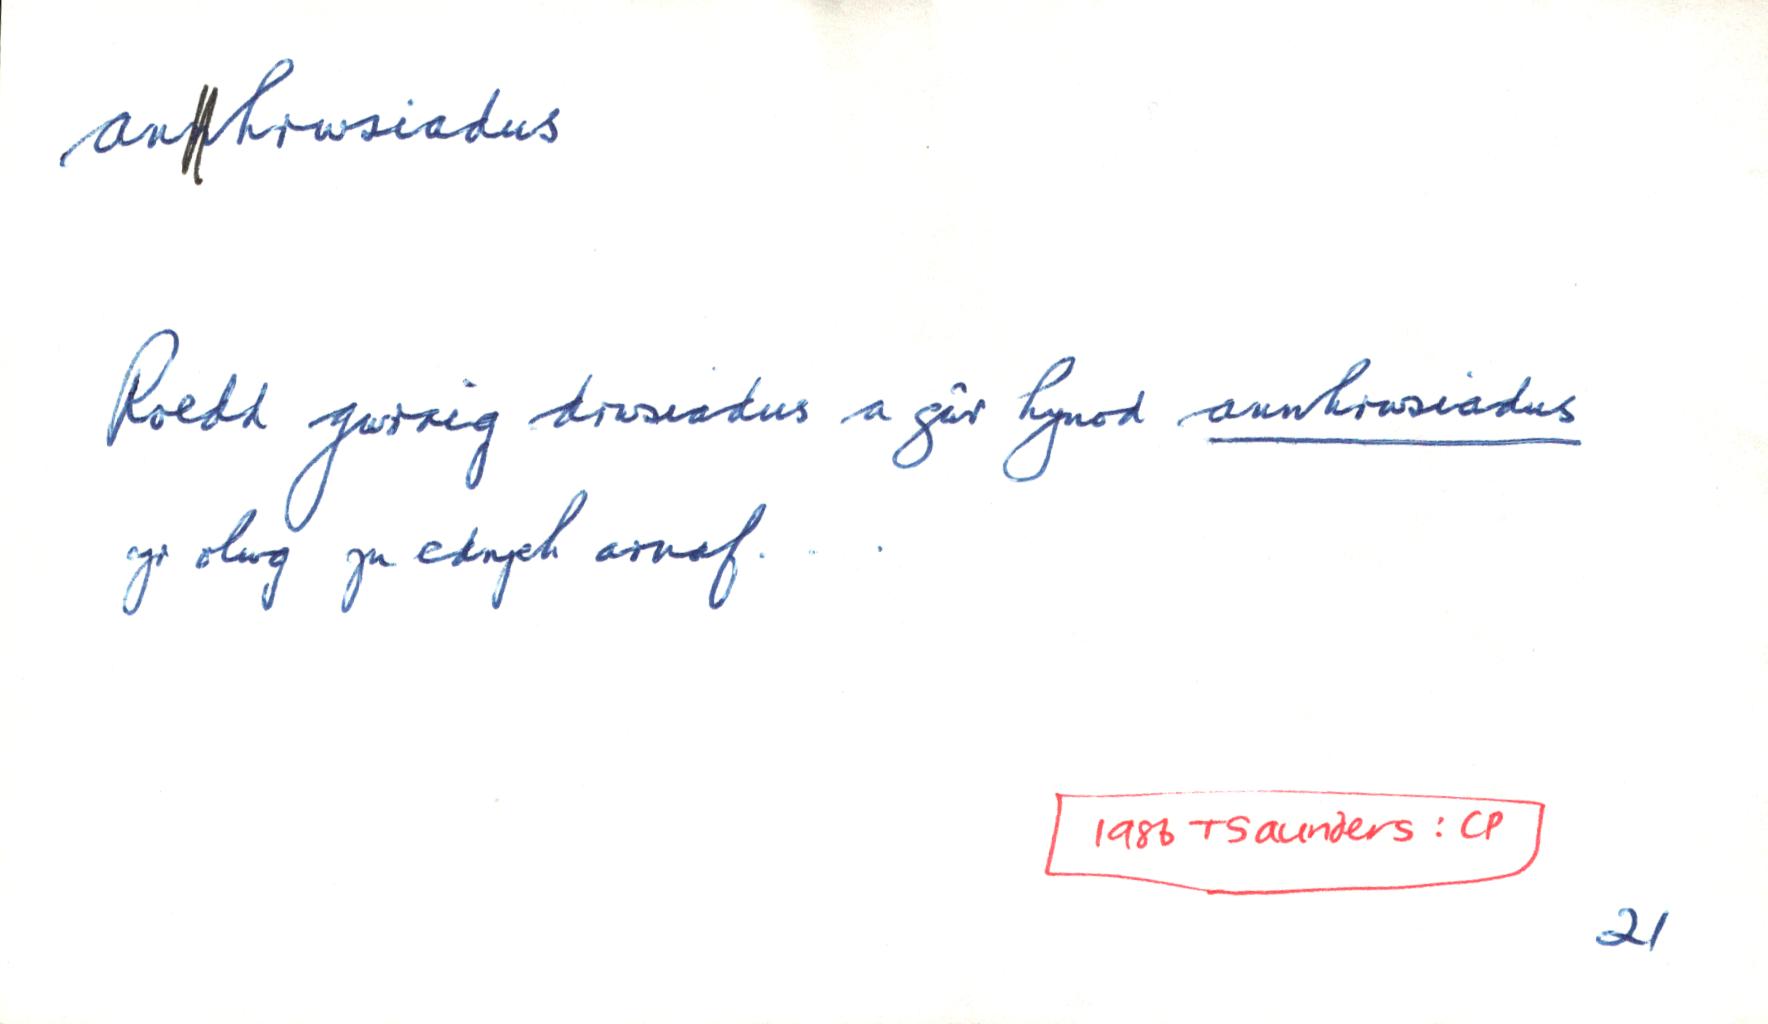 anhrwsiadus
Roedd gwraig drwsiadus a gŵr hynod annhrwsiadus
yr olwg yn edrych arnaf. . . .
1986 T Saunders : CP
21